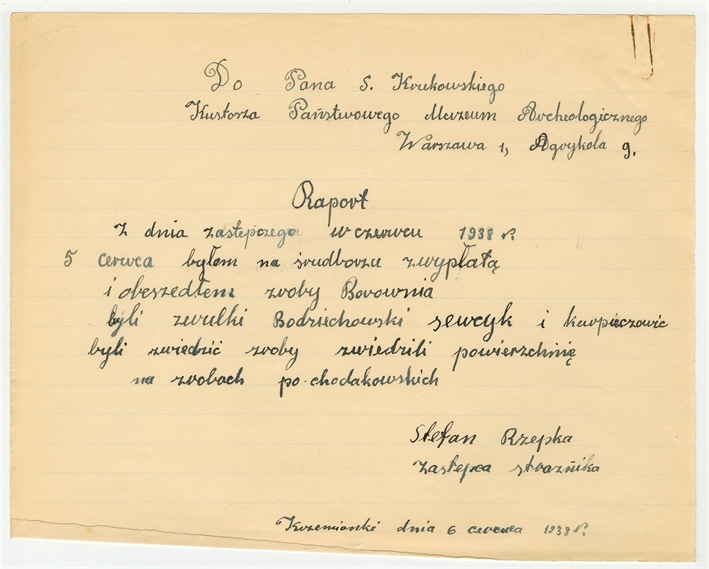 Do Pana S. Krukowskiego
Kustorza Państwowego Muzeum Archeologicznego
Warszawa 1, Agrykola 9.
Raport
Z dnia zastepczego w czerwcu 1938 r.
5 cerwca byłem na srudborzu zwypłatą
i obeszedłem zroby Borownia
byli zwulki Bodziechowski sewcyk i karpieczowic
byli zwiedzić zroby zwiedzili powierzchnię
na zrobach po.chodakowskich
Stefan Rzepka
Zastepca strażnika
Krzemionki dnia 6 cerwca 1938 r.